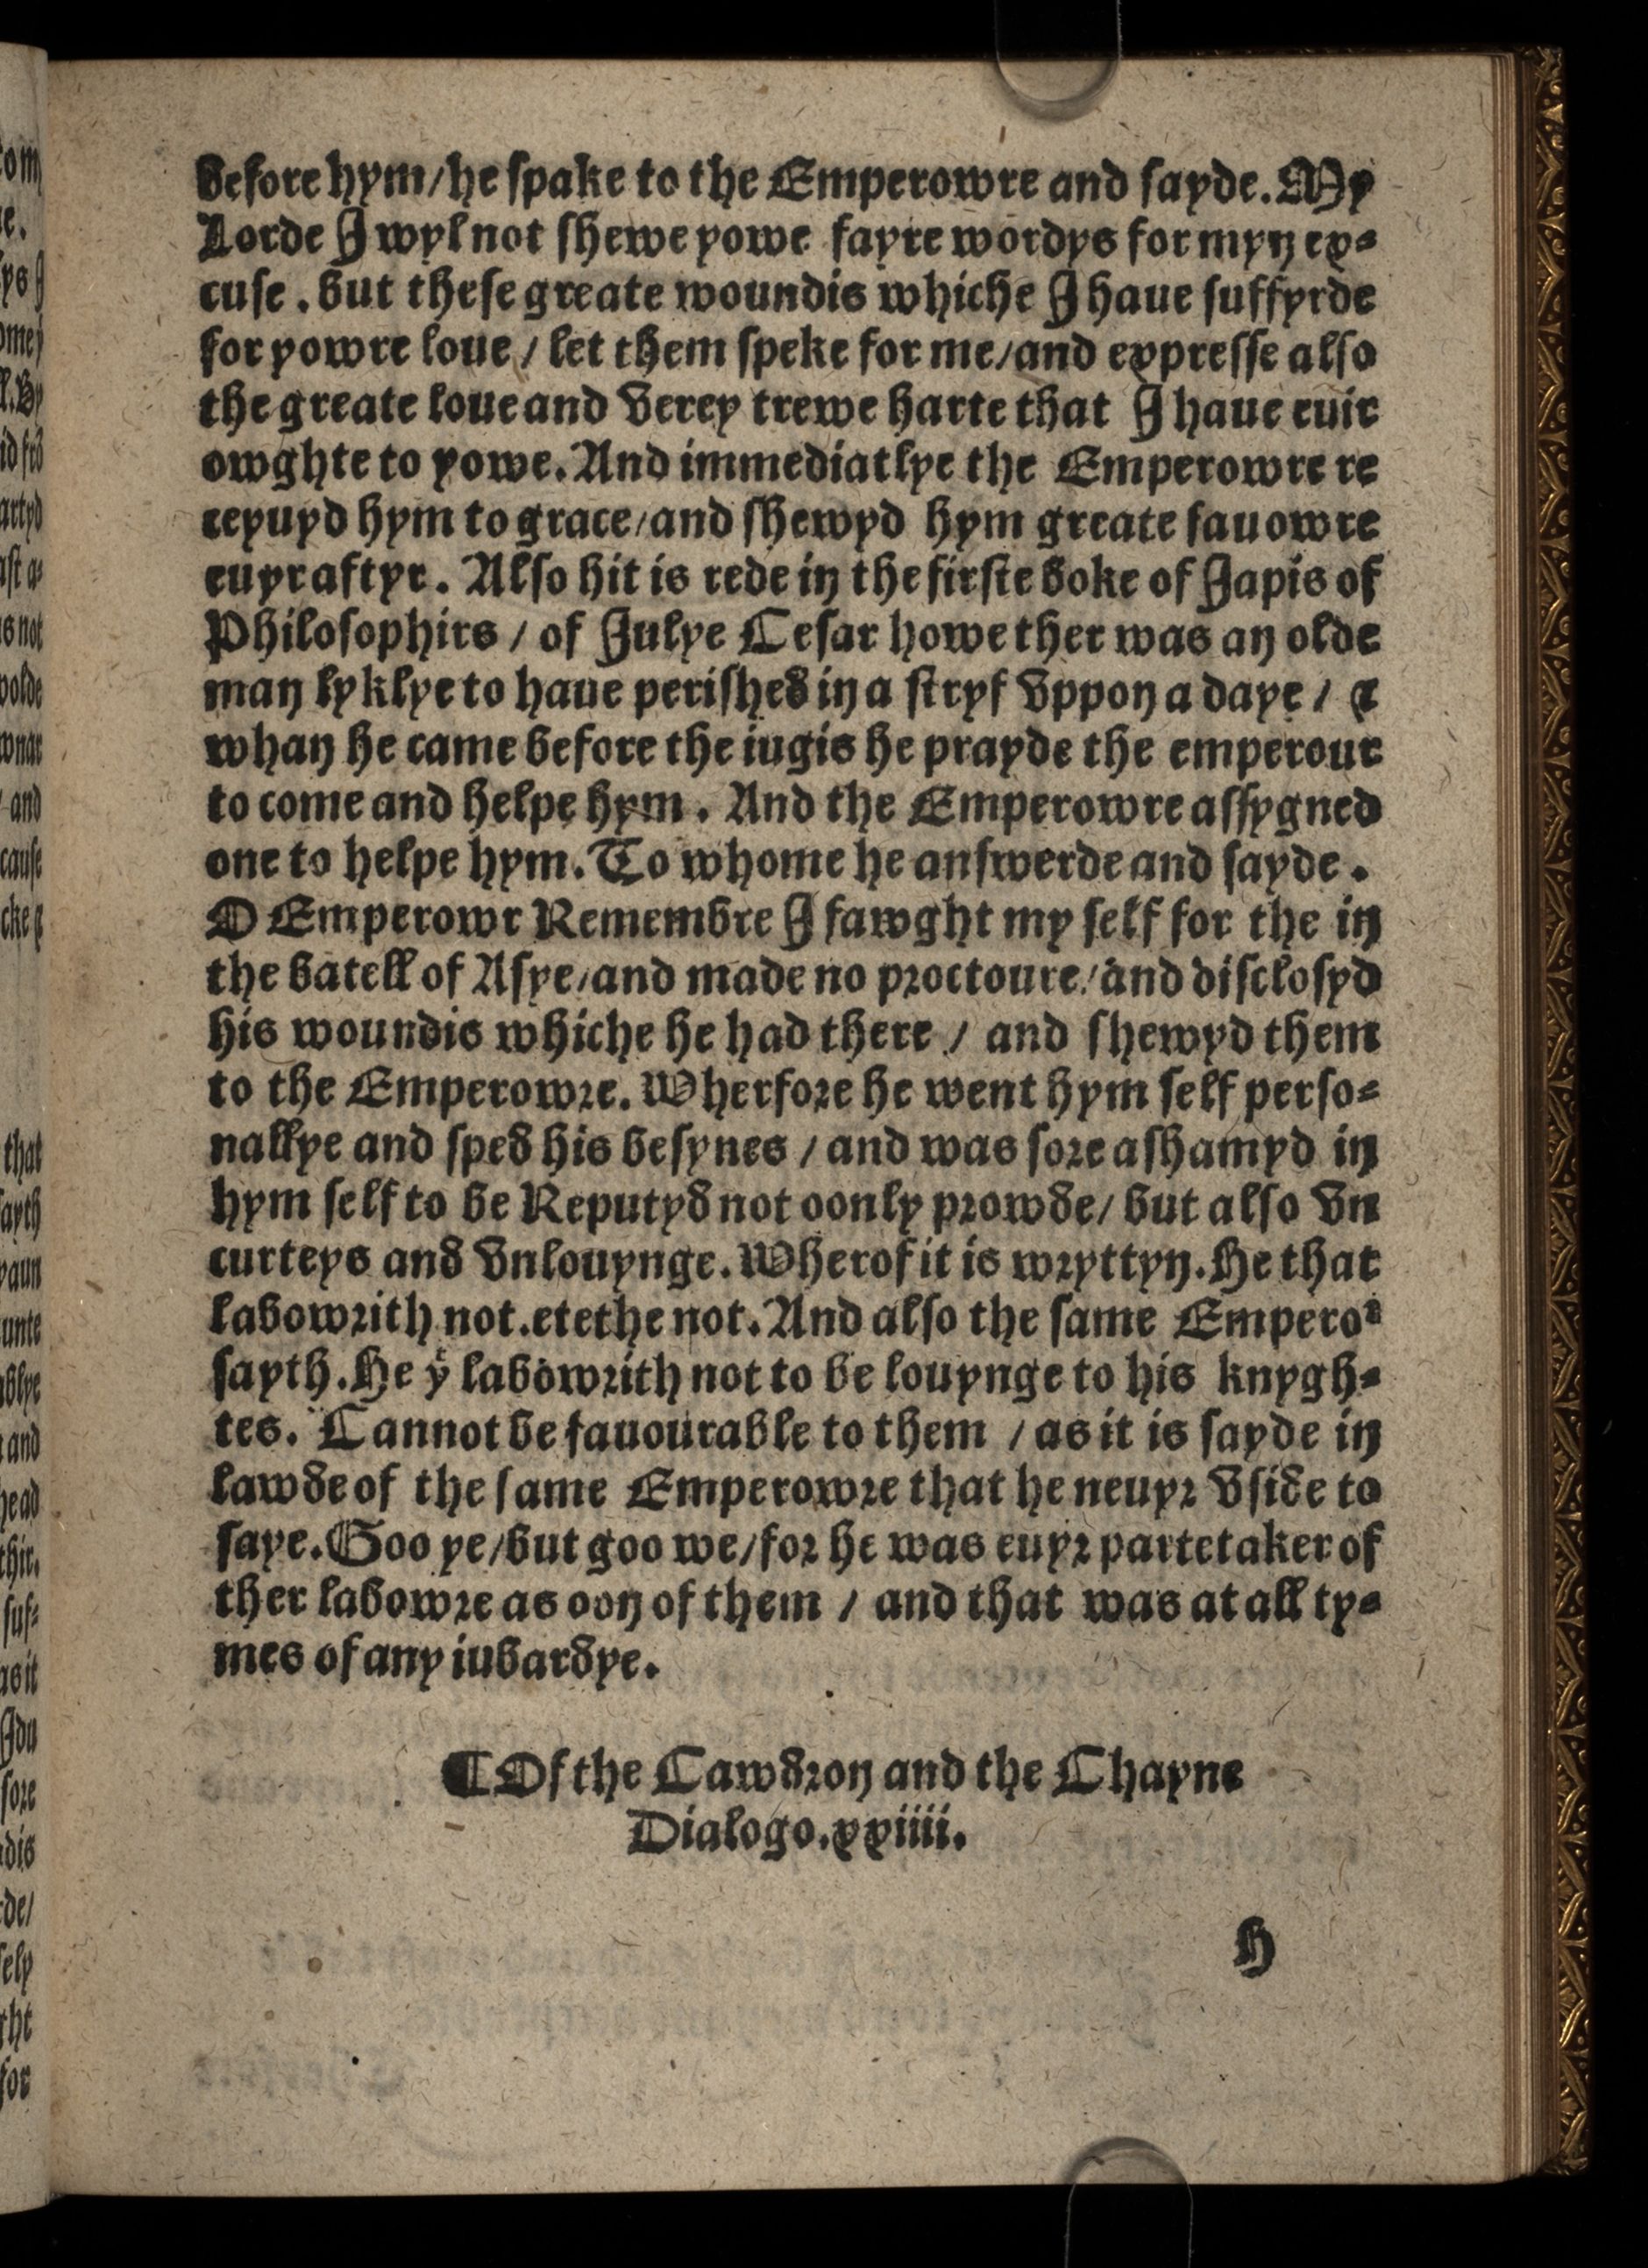 before hym/he ſpake to the Emperowre and ſayde. My
Lorde I wyl not ſhewe yowe fayre wordys for myn ex⸗
cuſe . but theſe greate woundis whiche I haue ſuffyrde
for yowre loue / let them ſpeke for me/and expreſſe alſo
the greate loue and verey trewe harte that I haue euir
owghte to yowe. And immediatlye the Emperowre re
ceyuyd hym to grace/and ſhewyd hym greate fauowre
euyr aftyr. Alſo hit is rede in the firſte boke of Japis of
Philoſophirs / of Julye Ceſar howe ther was an olde
man lyklye to haue periſhed in a ſtryf vppon a daye / ⁊
whan he came before the iugis he prayde the emperour
to come and helpe hym . And the Emperowre aſſygned
one to helpe hym. To whome he anſwerde and ſayde .
O Emperowr Remembre I fawght my ſelf for the in
the batell of Aſye/and made no pꝛoctoure/and diſcloſyd
his woundis whiche he had there / and ſhewyd them
to the Emperowꝛe. Wherfoꝛe he went hym ſelf perſo⸗
nallye and ſped his beſynes / and was ſoꝛe aſhamyd in
hym ſelf to be Reputyd not oonly pꝛowde/ but alſo vn
curteys and vnlouynge. Wherof it is wꝛyttyn. He that
labowꝛith not.etethe not. And alſo the ſame Emperoꝛ
ſayth. He yͭ labowꝛith not to be louynge to his knygh⸗
tes. Cannot be fauourable to them / as it is ſayde in
lawde of the ſame Emperowꝛe that he neuyꝛ vſide to
ſaye. Goo ye/but goo we/foꝛ he was euyꝛ parte taker of
ther labowꝛe as oon of them / and that was at all ty⸗
mes of any iubardye.
¶Of the Cawdꝛon and the Chayne
Dialogo.xxiiii.
H